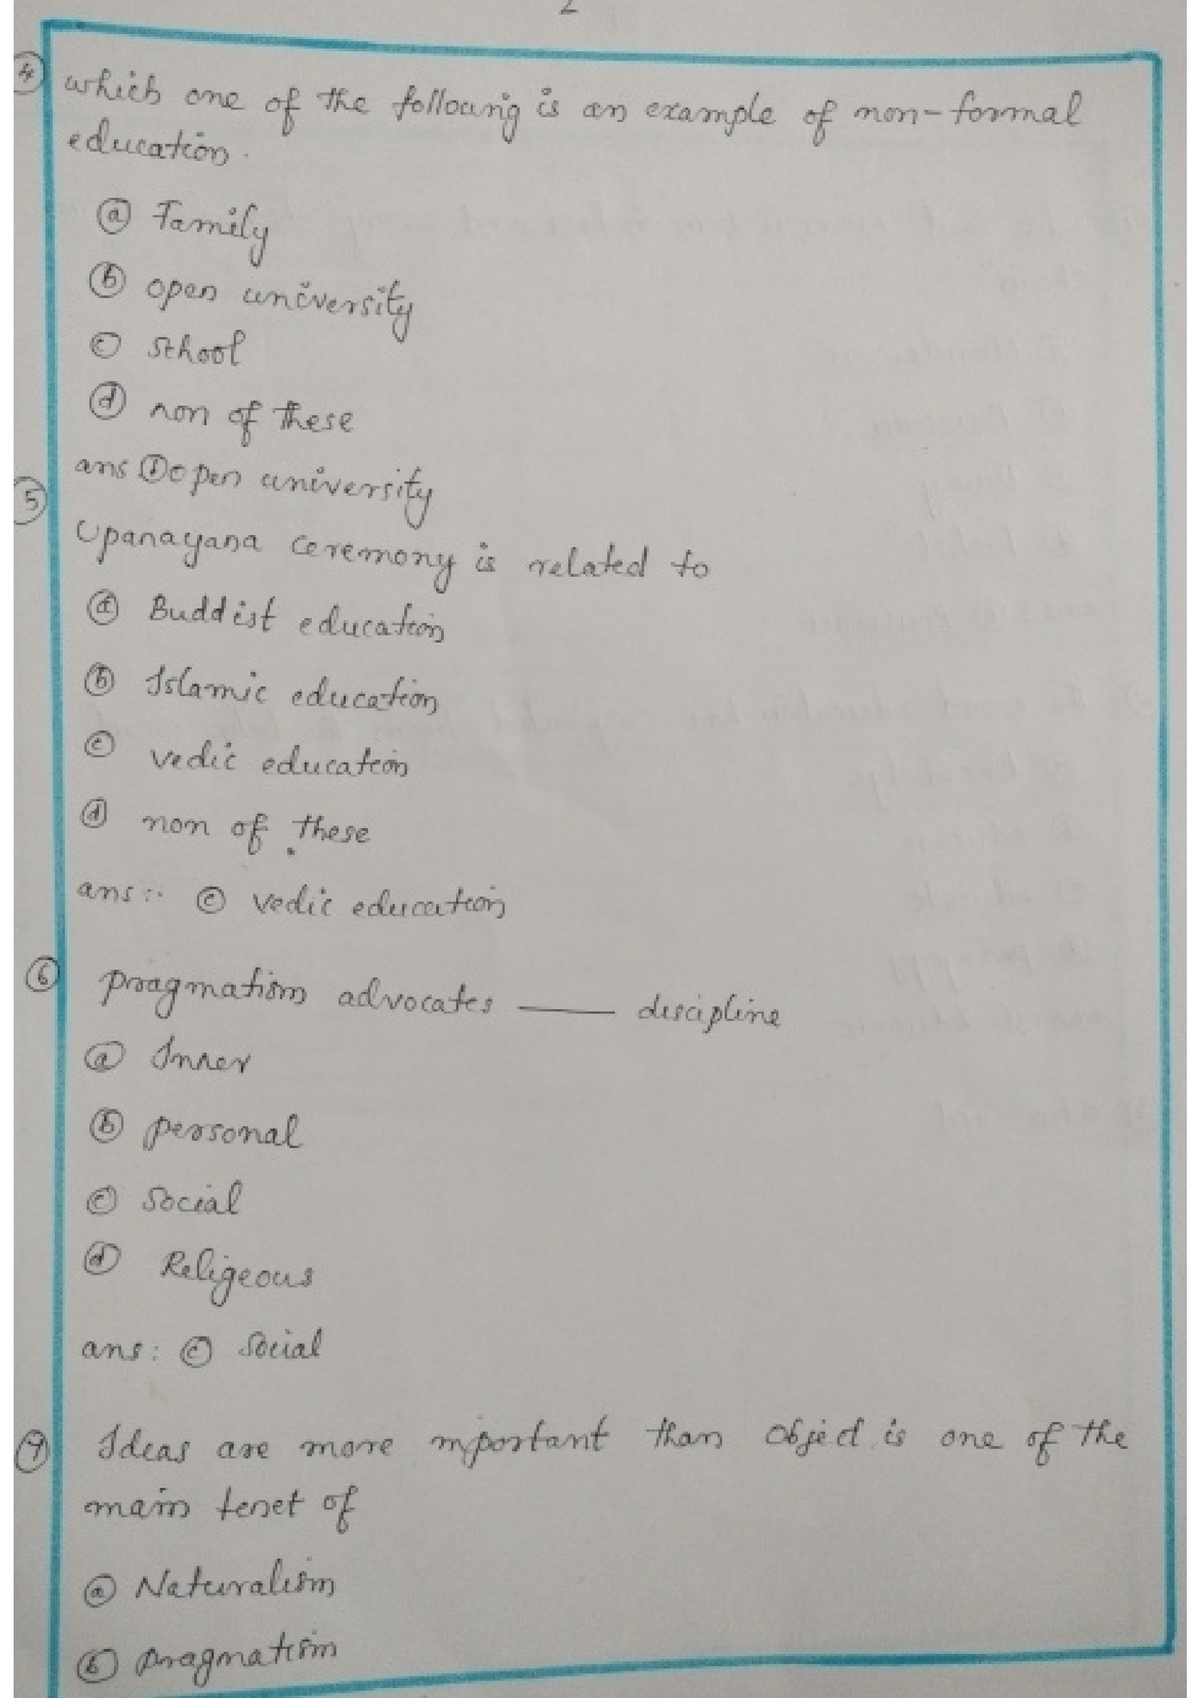 2
④ which one of the following is an example of non-formal
education.
ⓐ Family
ⓑ open university
ⓒ School
ⓓ non of these
ans ⓑ open university
⑤
Upanayana ceremony is related to
ⓐ Buddist education
ⓑ Islamic education
ⓒ vedic education
ⓓ non of these
ans :- ⓒ vedic education
⑥ pragmatism advocates ____ discipline
ⓐ Inner
ⓑ personal
ⓒ social
ⓓ Religeous
ans: ⓒ social
⑦ Ideas are more mportant than object is one of the
main tenet of
ⓐ Naturalism
ⓑ pragmatism